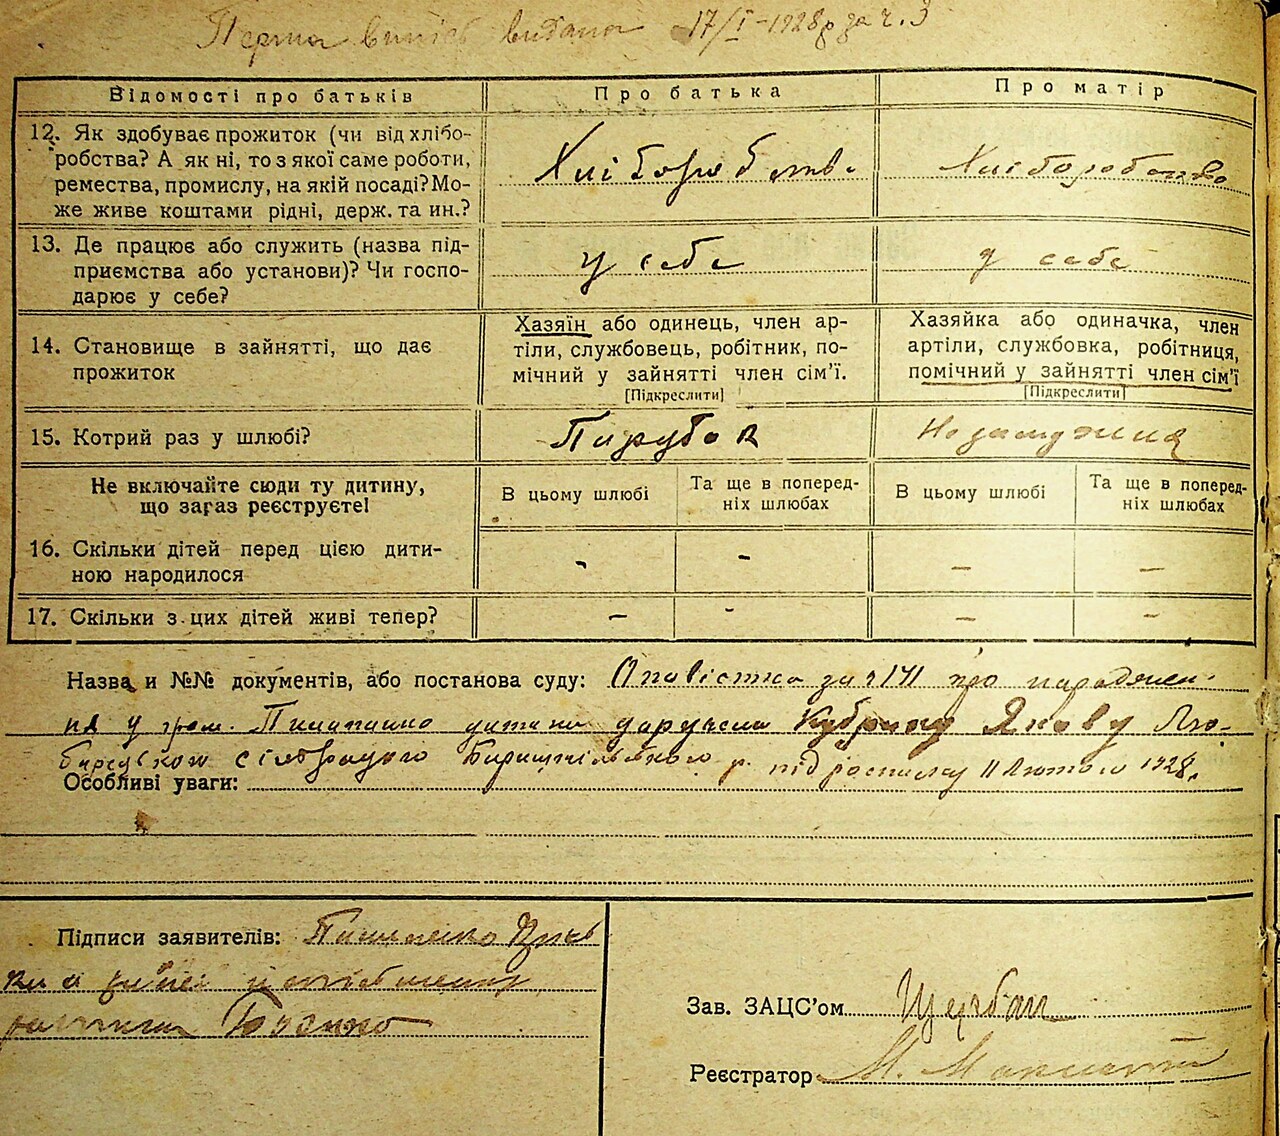 Перша випись видана 17/I-1928 р за ч. 3
Відомості про батьків
Про батька
Про матір
12. Як здобуває прожиток (чи від хлібо-
робства? А як ні, то з якої саме роботи,
ремества, промислу, на якій посаді? Мо-
же живе коштами рідні, держ. та ин.?
Хліборобство
Хліборобство
13. Де працює або служить (назва під-
приємства або установи)? Чи госпо-
дарює у себе?
у себе
у себе
14. Становище в зайнятті, що дає
прожиток
Хазяїн або одинець, член ар-
тіли, службовець, робітник, по-
мічний у зайнятті член сім’ї.
[Підкреслити]
Хазяйка або одиначка, член
артіли, службовка, робітниця,
помічний у зайнятті член сім’ї
[Підкреслити]
15. Котрий раз у шлюбі?
Парубок
Незамужня
Не включайте сюди ту дитину,
що зараз реєструєте!
В цьому шлюбі
Та ще в поперед-
ніх шлюбах
В цьому шлюбі
Та ще в поперед-
ніх шлюбах
16. Скільки дітей перед цією дити-
ною народилося
- - — —
17. Скільки з цих дітей живі тепер?
— - — —
Назва и №№ документів, або постанова суду: Оповістка за ч 141 про народжен-
ня у гром. Пилипенко дитини Кубраку Якову Лю-
барецькою сільрадою Бориспільського р. під росписку 11 Лютого 1928.
Особливі уваги:
Підписи заявителів: Пилипенко
Бузенко
Зав. ЗАЦС’ом Щербак
Реєстратор М.